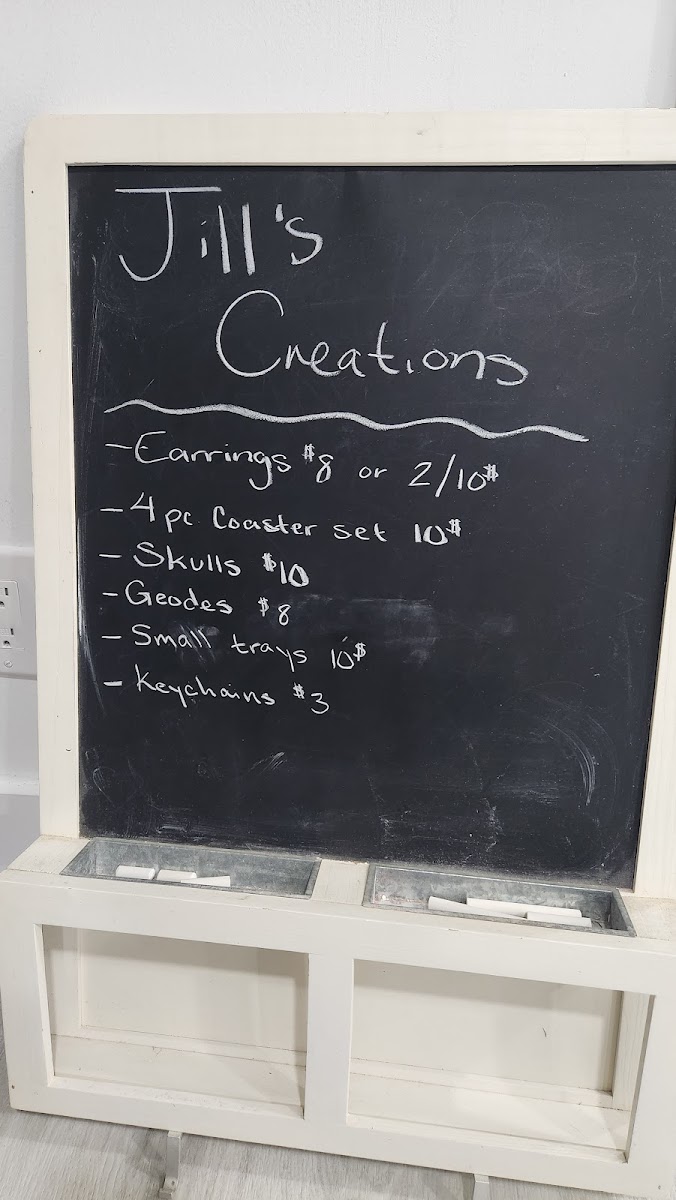 Jill's
Creations
- Earrings $8 or 2/10$
- 4 pc Coaster set 10$
- Skulls $10
- Geodes $8
- Small trays 10$
- Keychains $3